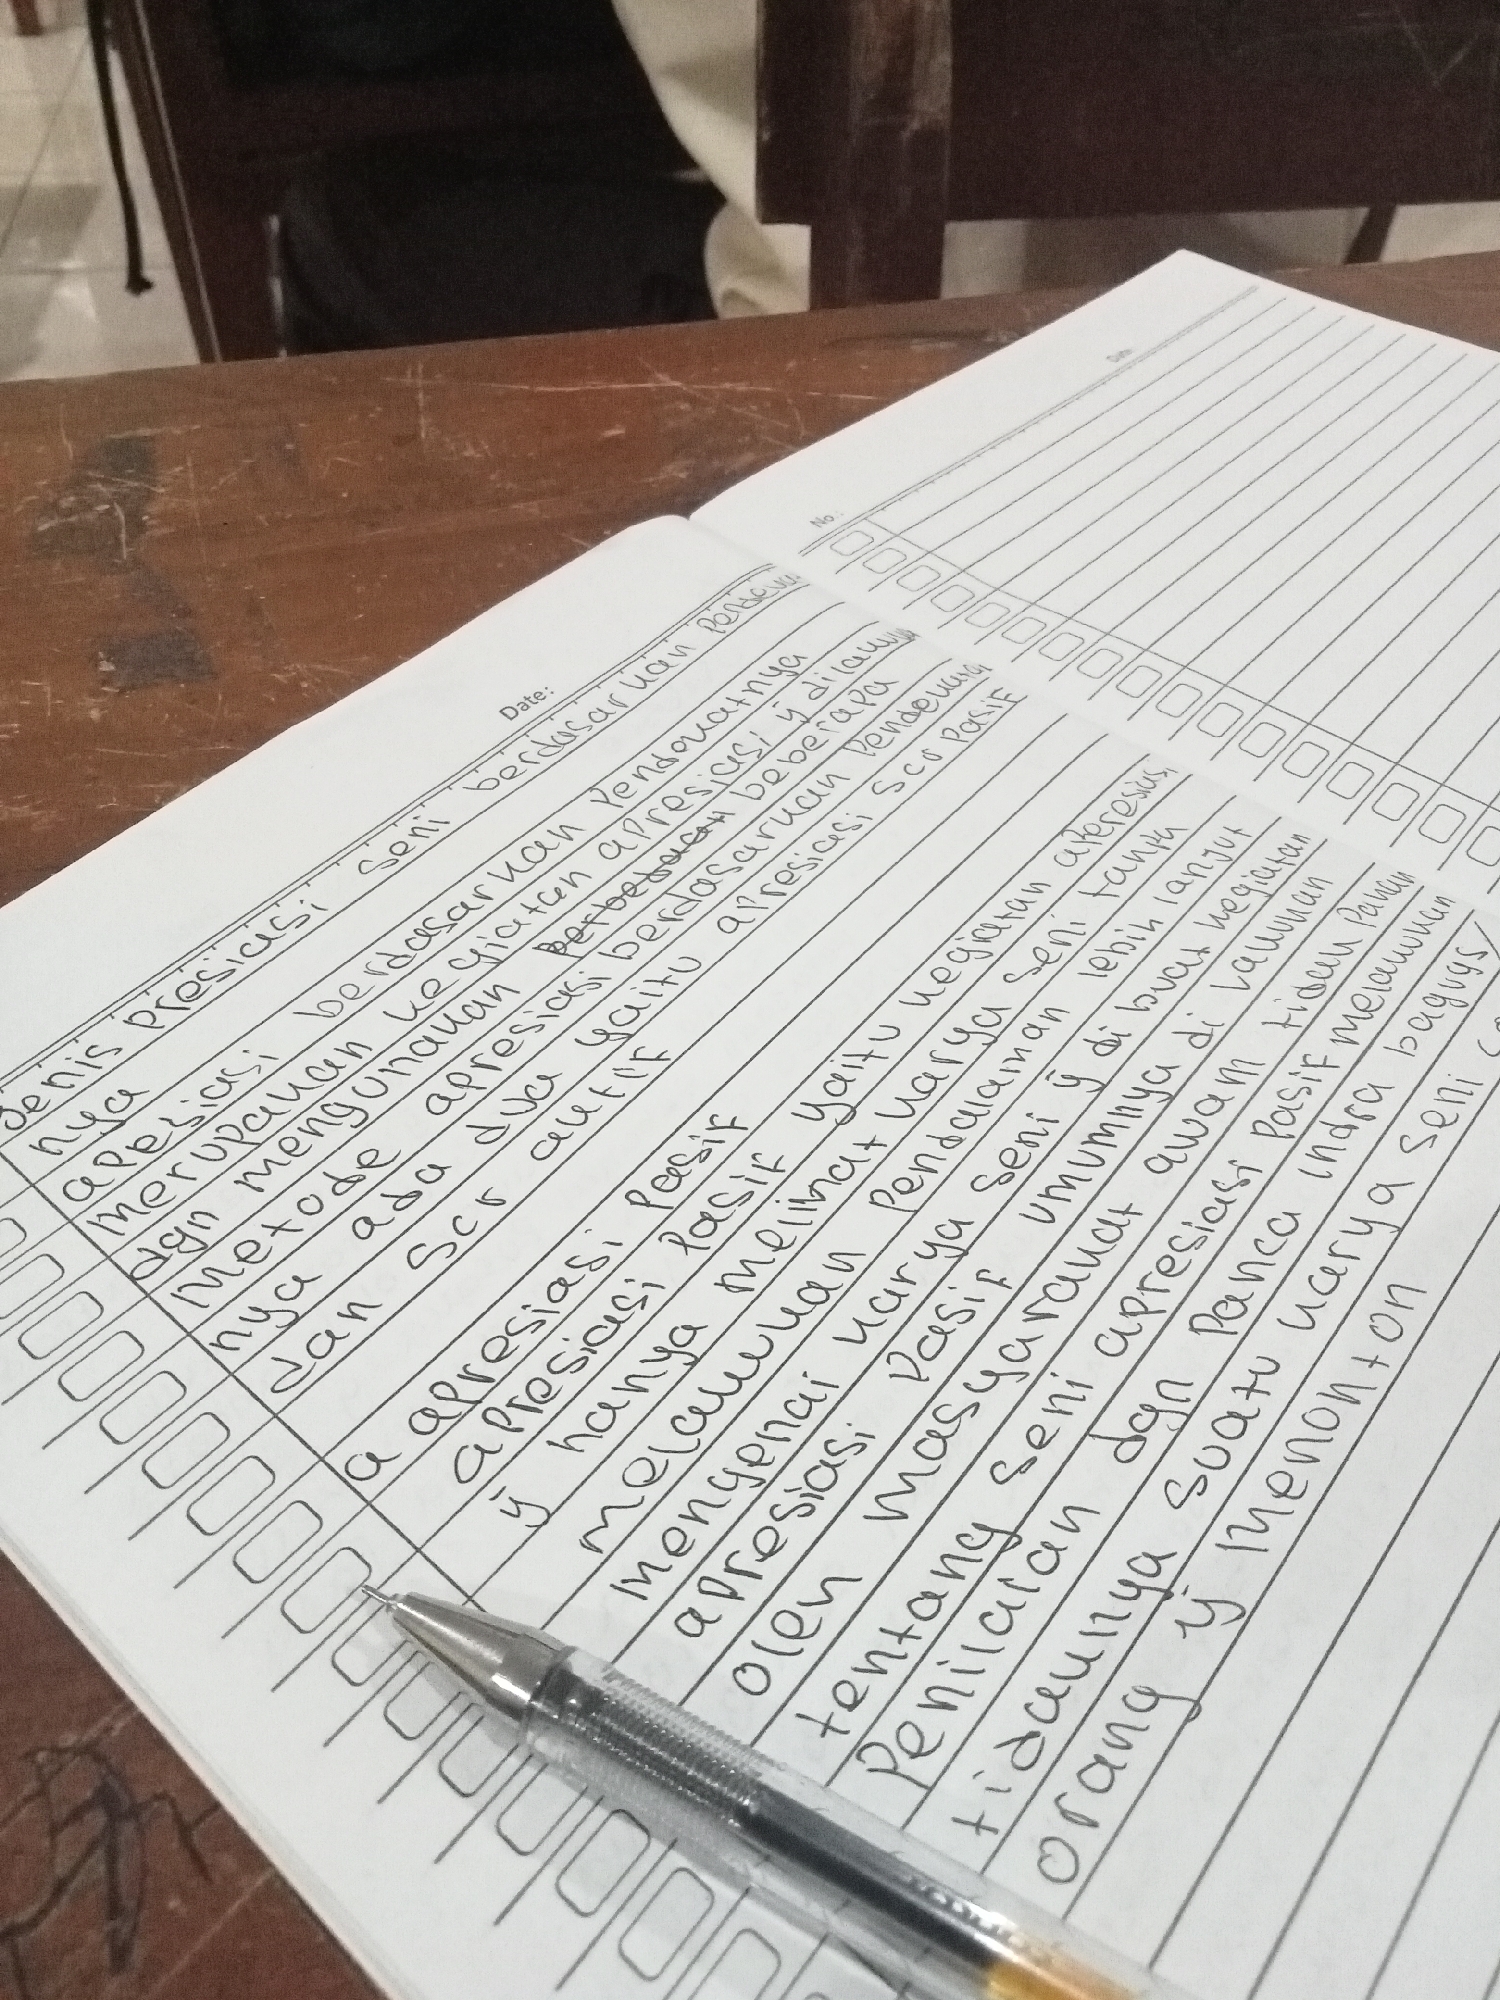 Date:
Jenis Presiasi Seni berdasarkan Pendeka
nya
apesiasi berdasarkan Pendekatnya
merupakan kegiatan apresiasi ÿ dilakuk
dgn mengunakan beberapa
metode apresiasi berdasarkan Pendekata
nya ada dua yaitu apresiasi scr Pasif
dan scr aktif
a apresiasi Pasif
apresiasi Pasif yaitu kegiatan aperesiasi
ÿ hanya melihat karya seni tanpa
melakukan Pendalaman lebih lanjut
mengenai karya seni ÿ di buat kegiatan
apresiasi Pasif umumnya di lakukan
oleh masyarakat awam tidak Paham
tentang seni apresiasi Pasif melakukan
Penilaian dgn Panca indra bagugs/
tidaknya suatu karya seni
orang ÿ menonton
No.: